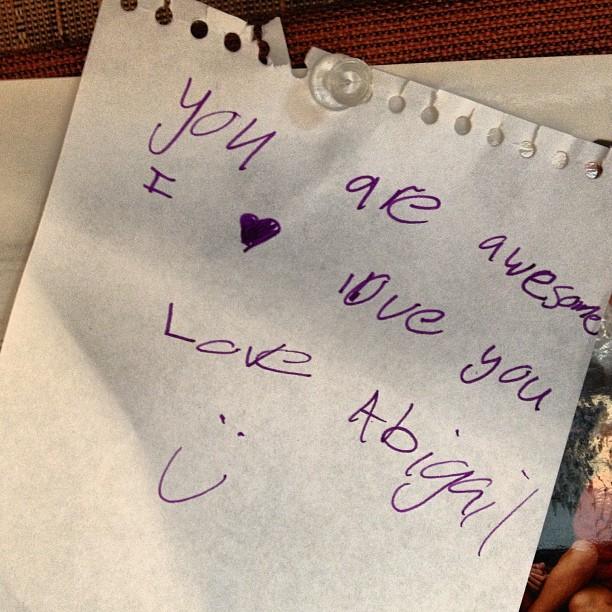 You are awesome
I ♥ love you
Love Abigail